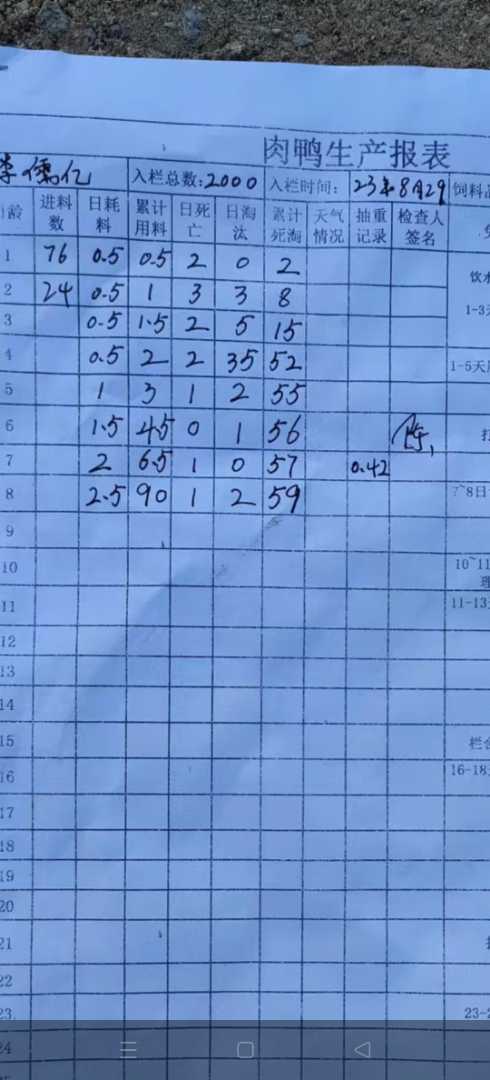 肉鸭生产报表
李儒亿 入栏总数:2000 入栏时间: 23年8月29 饲料
日龄 进料数 日耗料 累计用料 日死亡 日淘汰 累计死淘 天气情况 抽重记录 检查人签名
1 76 0.5 0.5 2 0 2
饮水
2 24 0.5 1 3 3 8
1-3
3 0.5 1.5 2 5 15
4 0.5 2 2 35 52
1-5天
5 1 3 1 2 55
6 1.5 4.5 0 1 56
7 2 6.5 1 0 57 0.42
8 2.5 90 1 2 59
7~8日
9
10
10~11
11
11-13
12
13
14
15
栏舍
16
16-18
17
18
19
20
21
22
23
23-2
24